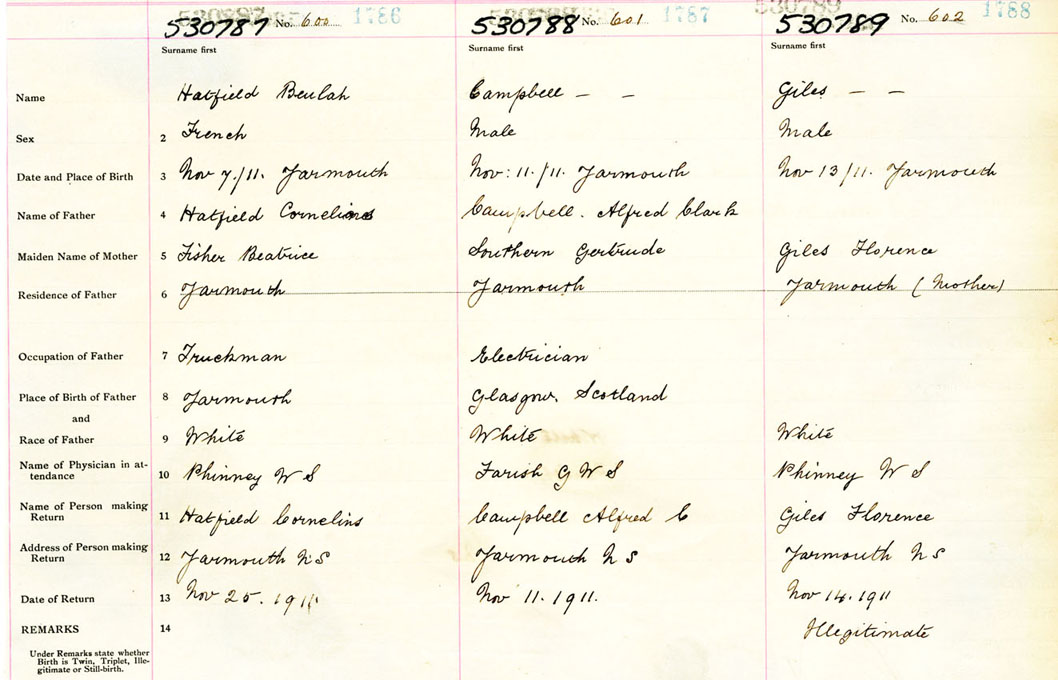 530787 No. 600 1786 530788 No. 601 1787 530789 No. 602 1788
Surname first Surname first Surname first
Name Hatfield Beulah Campbell — — Giles — —
Sex 2 French Male Male
Date and Place of Birth 3 Nov 7/11. Yarmouth Nov: 11/11. Yarmouth Nov 13/11. Yarmouth
Name of Father 4 Hatfield Cornelius Campbell. Alfred Clark
Maiden Name of Mother 5 Fisher Beatrice Southern Gertrude Giles Florence
Residence of Father 6 Yarmouth Yarmouth Yarmouth (Mother)
Occupation of Father 7 Truckman Electrician
Place of Birth of Father 8 Yarmouth Glasgow, Scotland
and
Race of Father 9 White White White
Name of Physician in at-
tendance 10 Phinney W S Farish G W S Phinney W S
Name of Person making
Return 11 Hatfield Cornelius Campbell Alfred C Giles Florence
Address of Person making
Return 12 Yarmouth N S Yarmouth N S Yarmouth N S
Date of Return 13 Nov 25. 1911 Nov 11. 1911. Nov 14. 1911
REMARKS 14 Illegitimate
Under Remarks state whether
Birth is Twin, Triplet, Ille-
gitimate or Still-birth.